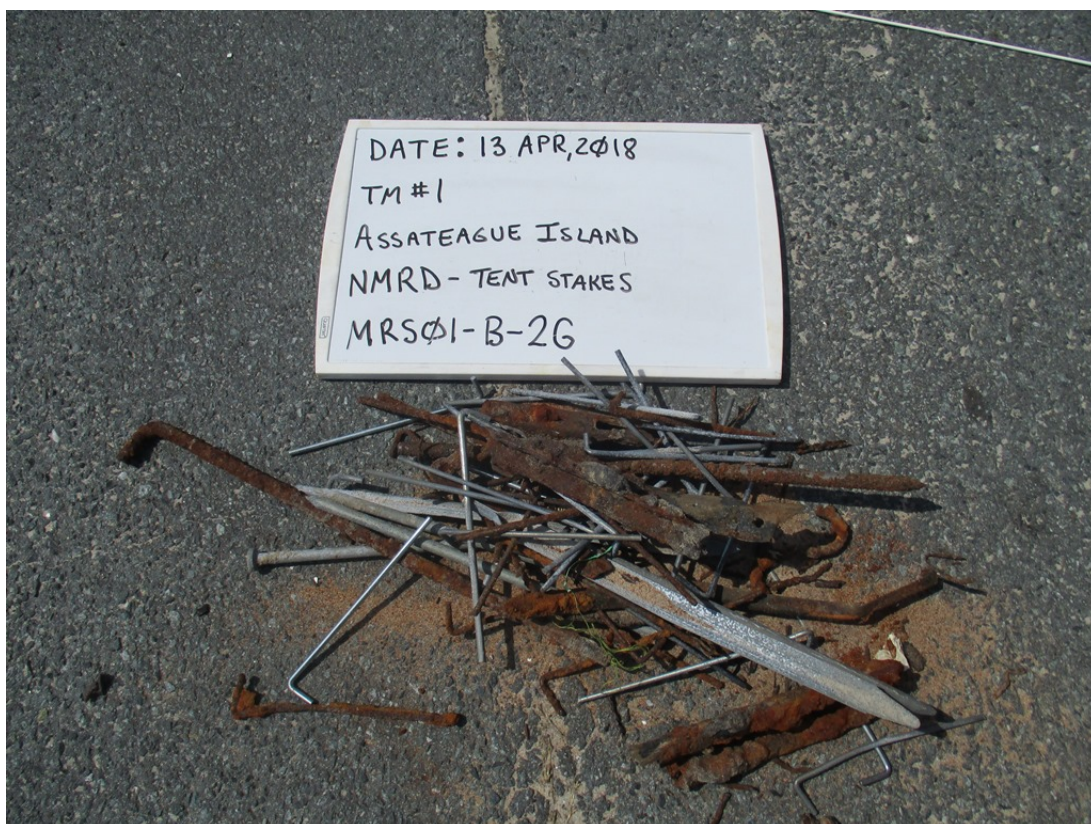 DATE: 13 APR, 2Ø18
TM #1
ASSATEAGUE ISLAND
NMRD - TENT STAKES
MRSØ1-B-2G